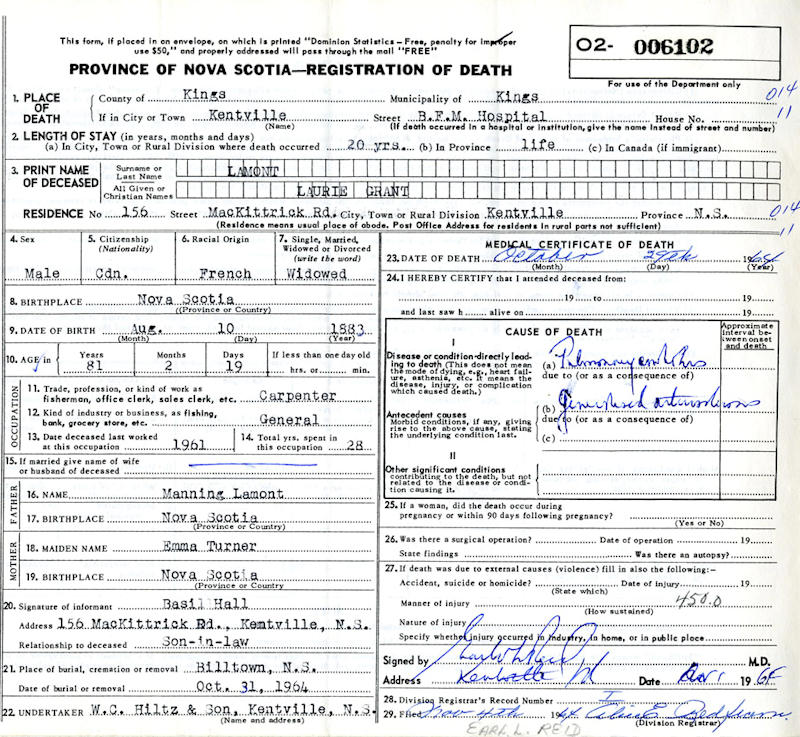 This form, if placed in an envelope, on which is printed "Dominion Statistics – Free, penalty for improper
use $50," and properly addressed will pass through the mail "FREE"
02- 006102
PROVINCE OF NOVA SCOTIA—REGISTRATION OF DEATH
For use of the Department only
1. PLACE OF DEATH { County of Kings Municipality of Kings 014
If in City or Town Kentville (Name) Street B.F.M. Hospital House No. 11
(If death occurred in a hospital or institution, give the name instead of street and number)
2. LENGTH OF STAY (in years, months and days)
(a) In City, Town or Rural Division where death occurred 20 yrs. (b) In Province life (c) In Canada (if immigrant)
3. PRINT NAME OF DECEASED { Surname or Last Name LAMONT
All Given or Christian Names LAURIE GRANT
RESIDENCE No 156 Street MacKittrick Rd. City, Town or Rural Division Kentville Province N.S. 014
(Residence means usual place of abode. Post Office Address for residents in rural parts not sufficient) 11
4. Sex Male
5. Citizenship (Nationality) Cdn.
6. Racial Origin French
7. Single, Married, Widowed or Divorced (write the word) Widowed
8. BIRTHPLACE Nova Scotia
(Province or Country)
9. DATE OF BIRTH Aug. 10 1883
(Month) (Day) (Year)
10. AGE in Years 81 Months 2 Days 19 If less than one day old hrs. or min.
OCCUPATION
11. Trade, profession, or kind of work as
fisherman, office clerk, sales clerk, etc. Carpenter
12. Kind of industry or business, as fishing,
bank, grocery store, etc. General
13. Date deceased last worked at this occupation 1961
14. Total yrs. spent in this occupation 28
15. If married give name of wife
or husband of deceased
FATHER
16. NAME Manning Lamont
17. BIRTHPLACE Nova Scotia
(Province or Country)
MOTHER
18. MAIDEN NAME Emma Turner
19. BIRTHPLACE Nova Scotia
Province or Country
20. Signature of informant Basil Hall
Address 156 MacKittrick Rd., Kentville, N.S.
Relationship to deceased Son-in-law
21. Place of burial, cremation or removal Billtown, N.S.
Date of burial or removal Oct. 31, 1964
22. UNDERTAKER W.C. Hiltz & Son, Kentville, N.S.
(Name and address)
MEDICAL CERTIFICATE OF DEATH
23. DATE OF DEATH October 29th 1964
(Month) (Day) (Year)
24. I HEREBY CERTIFY that I attended deceased from:
19 to 19
and last saw h alive on 19
CAUSE OF DEATH
Approximate interval between onset and death
I
Disease or condition directly leading to death (This does not mean the mode of dying, e.g., heart failure, asthenia, etc. It means the disease, injury, or complication which caused death.)
(a) Pulmonary embolus
due to (or as a consequence of)
Antecedent causes
Morbid conditions, if any, giving rise to the above cause, stating the underlying condition last.
(b) Generalised arteriosclerosis
due to (or as a consequence of)
(c)
II
Other significant conditions
contributing to the death, but not related to the disease or condition causing it.
25. If a woman, did the death occur during
pregnancy or within 90 days following pregnancy?
(Yes or No)
26. Was there a surgical operation? Date of operation 19
State findings Was there an autopsy?
27. If death was due to external causes (violence) fill in also the following:–
Accident, suicide or homicide? Date of injury 19
(State which)
Manner of injury 450.0
(How sustained)
Nature of injury
Specify whether injury occurred in industry, in home, or in public place
Signed by M.D.
Address Kentville Date 1964
28. Division Registrar's Record Number
29. Filed Nov 4th 1964
(Division Registrar)
EARL L. REID